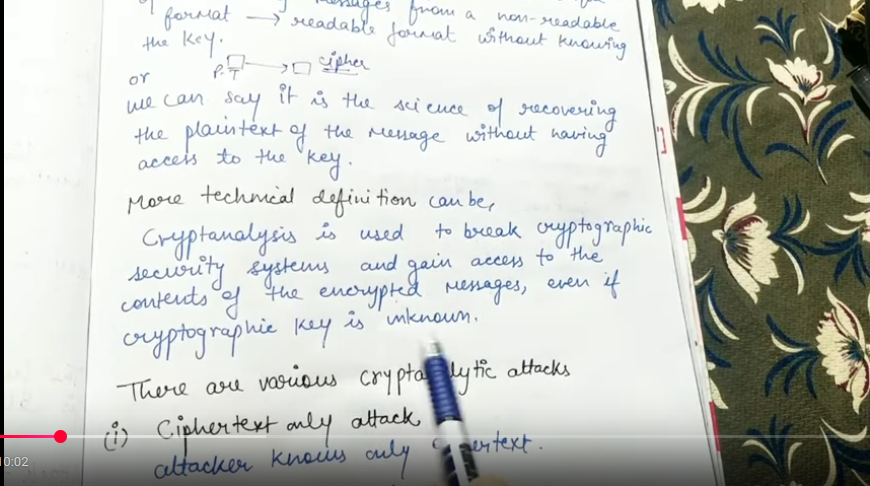 messages from a non-readable
format → readable format without knowing
the key.
P.T → cipher
or
we can say it is the science of recovering
the plaintext of the message without having
access to the key.
More technical definition can be,
Cryptanalysis is used to break cryptographic
security systems and gain access to the
contents of the encrypted messages, even if
cryptographic key is unknown.
There are various cryptanalytic attacks
(i) Ciphertext only attack
attacker knows only ciphertext.
10:02